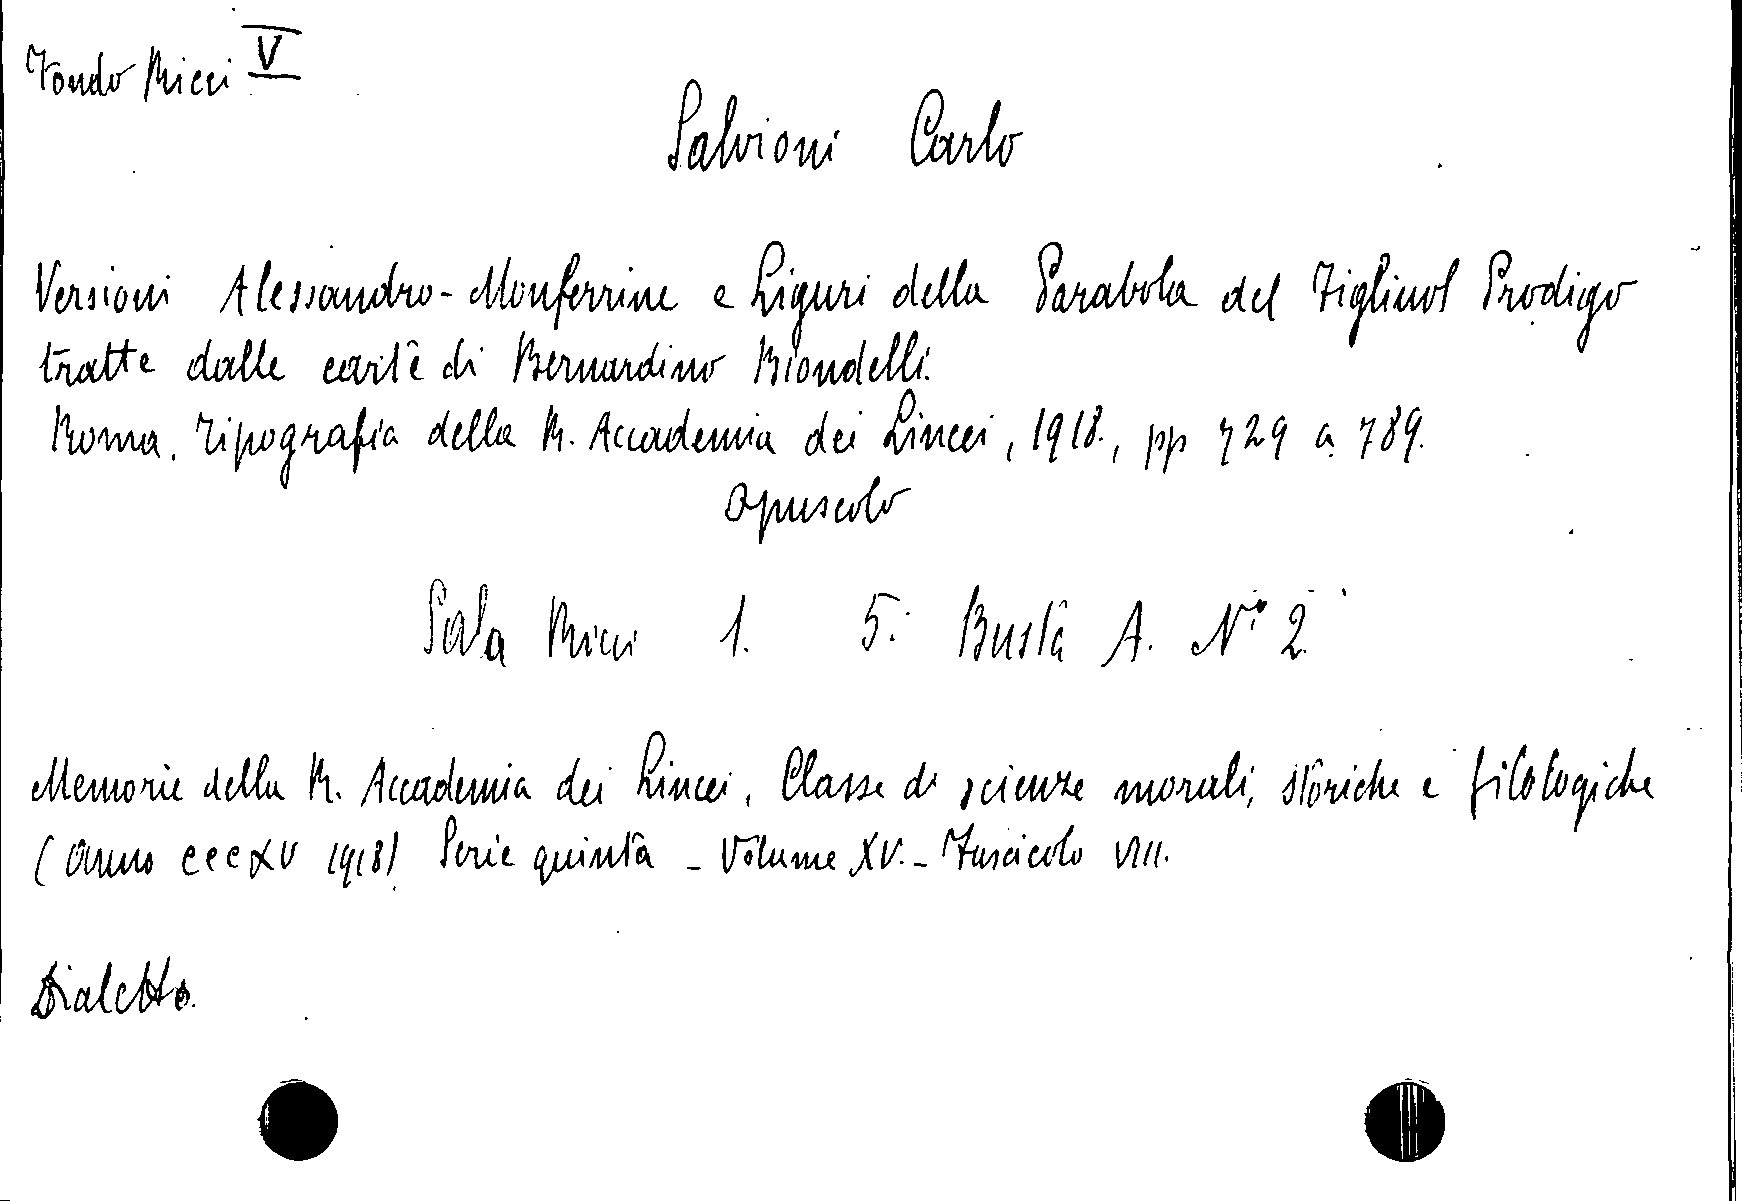 Fondo Ricci V
Salvioni Carlo
Versioni Alessandro-Monferrine e Liguri della Parabola del Figliuol Prodigo
tratte dalle carte di Bernardino Biondelli.
Roma. Tipografia della R. Accademia dei Lincei, 1918., pp 729 a 789.
Opuscolo
Sala Ricci 1. 5. Busta A. N° 2
Memorie della R. Accademia dei Lincei, Classe di scienze morali, storiche e filologiche
(anno CCCXV 1918) Serie quinta - Volume XV. - Fascicolo VIII.
Dialetto.